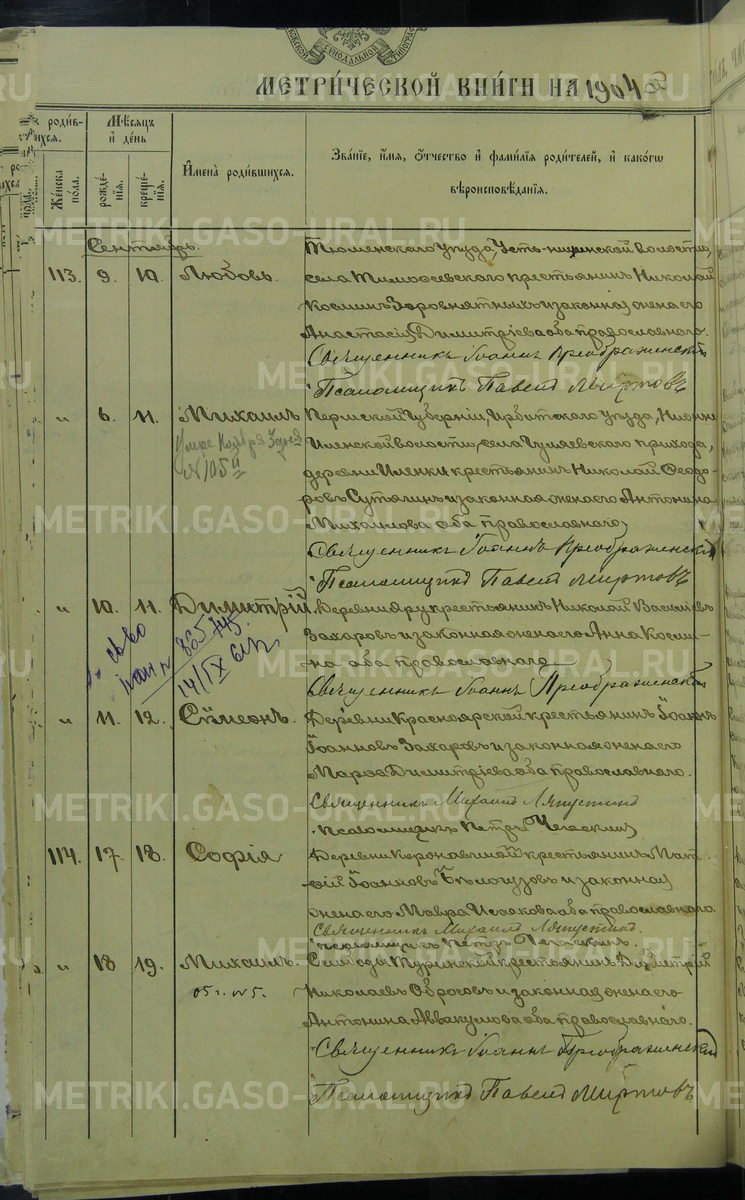 МЕТРИ́ЧЕСКОЙ КНИ́ГИ НА 1904
роди́в-
шихся.
Же́нска
по́ла.
Мѣ́сяцъ
и҆ де́нь
рожде́-
нїѧ.
креще́-
нїѧ.
И҆мена̀ роди́вшихся.
Зва́нїе, и҆́мя, ѻ҆́тчество и҆ фами́лїя роди́телей, и҆ како́гѡ
вѣроисповѣ́данїя.
Сентябрь.
Тюменскаго уѣзда, Усть-ницинской волости,
113. 9. 10. Любовь. села Тимофеевскаго крестьянинъ Николай
Косминъ и законная жена его
Анастасія Димитріева оба православнаго.
Священникъ Іоаннъ Преображенскій
Псаломщикъ Павелъ Миртовъ
" 6. 11. Михаилъ Пермской губерніи, Ирбитскаго уѣзда,
волости, села прихода,
деревни крестьянинъ Николай Ѳеодо-
ровъ и законная жена его Антонина
Михаилова оба православнаго
№105
Священникъ Іоаннъ Преображенскій
Псаломщикъ Павелъ Миртовъ
" 10. 11. Димитрій Деревни крестьянинъ Николай Василіевъ
Захаровъ и законная жена его Анна Косми-
на оба православнаго
865745
14/IX 61
Священникъ Іоаннъ Преображенскій
" 11. 12. Сѵмеонъ. Деревни Красноярской крестьянинъ Іоаннъ
Іоанновъ Захаровъ и законная жена его
Марѳа Димитріева оба православнаго.
Священникъ Михаилъ Ляпустинъ
псаломщикъ Петръ
114. 17. 18. Софія Деревни крестьянинъ Мат-
ѳій Іоанновъ Бѣлоглузовъ и законная
жена его Мавра Исаакова оба православнаго.
Священникъ Михаилъ Ляпустинъ.
псаломщикъ Петръ
" 18 19. Михаилъ. Слободы Туринской крестьянинъ Димитрій
05 г. №5. Николаевъ и законная жена его
Антонина Аввакумова оба православнаго.
Священникъ Іоаннъ Преображенскій
Псаломщикъ Павелъ Миртовъ
METRIKI.GASO-URAL.RU